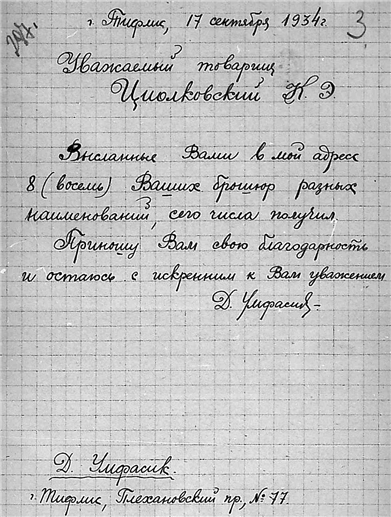 г. Тифлис, 17 сентября 1934 г.
3
Уважаемый товарищ
Циолковский К. Э.
Высланные Вами в мой адрес
8 (восемь) Ваших брошюр разных
наименований, сего числа получил.
Приношу Вам свою благодарность
и остаюсь с искренним к Вам уважением
Д.
Д.
г. Тифлис, Плехановский пр., № 77